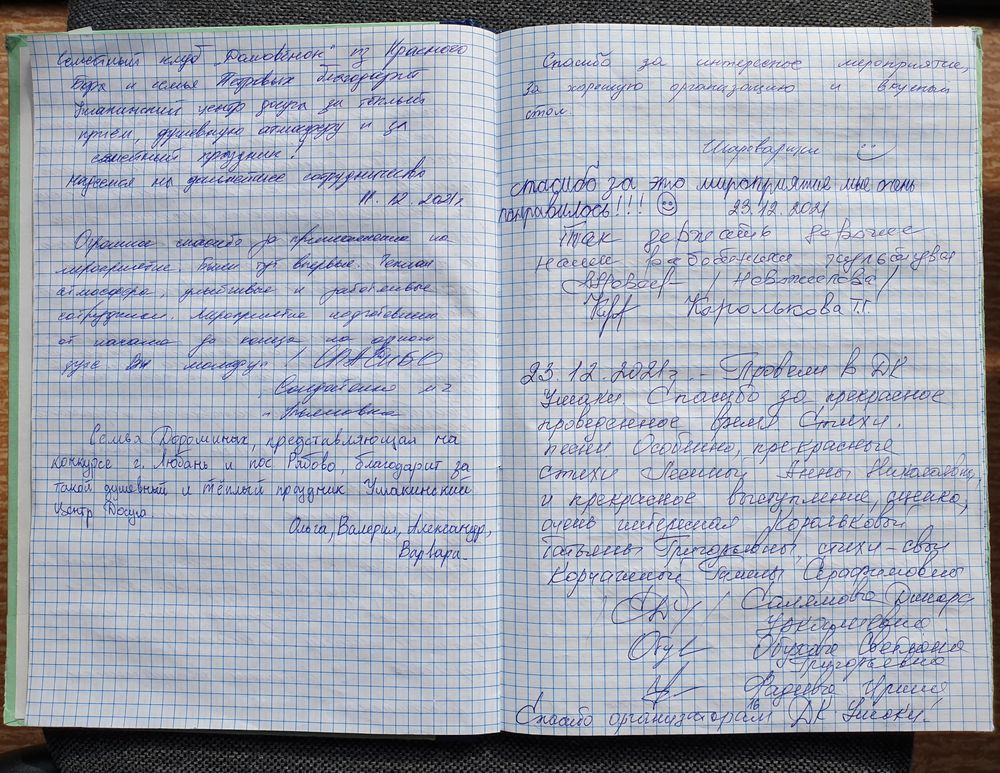 Семейный клуб "Домовёнок" из Красного
Бора и семья Петровых благодарит
Ушакинский центр досуга за теплый
приём, душевную атмасферу и за
семейный праздник!
Надеемся на дальнейшее сотрудничество
11.12.2021г
Огромное спасибо за приглашение на
мероприятие. Были тут впервые. Теплая
атмосфера, улыбчивые и заботливые
сотрудники. Мероприятие подготовлено
от начала до конца на одном
духе. Вы молодцы! СПАСИБО
Семья Дороминых, представляющая на
конкурсе г. Любань и пос. Рябово, благодарит за
такой душевный и тёплый праздник Ушакинский
Центр Досуга
Ольга, Валерия, Александр,
Варвара
Спасибо за интересное мероприятие,
За хорошую организацию и вкусный
стол.
Шароварики
спасибо за это мироприятие мне очень
панравилось!!! 23.12.2021
Так держать дорогие
наши работники культуры
/Новожилова/
Королькова Т.Г.
23.12.2021г. - Провели в ДК
Ушаки. Спасибо за прекрасное
проведенное время Стихи.
песни Особенно, прекрасные
стихи Анны Николаевны,
и прекрасное выступление, сценка,
очень интересная Корольковой
Татьяны Григорьевны, стихи-свои
Корчагиной Галины Серафимовны
Салямова Динара
Обухова Светлана
Григорьевна
Фадеева Ирина
Спасибо организаторам ДК Ушаки!
16